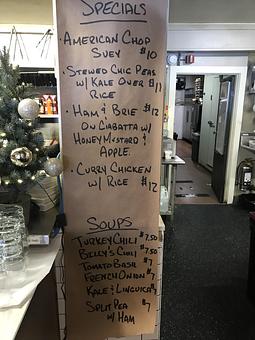 SPECIALS
• AMERICAN CHOP
SUEY $10
• STEWED CHIC PEAS
W/ KALE OVER $11
RICE
• HAM & BRIE $12
ON CIABATTA W/
HONEY MUSTARD &
APPLE.
• CURRY CHICKEN
W/ RICE $12
SOUPS
TURKEY CHILI $7.50
BILLY'S CHILI $7.50
TOMATO BASIL $7
FRENCH ONION $7
KALE & LINGUICA $7
SPLIT PEA $7
W/ HAM